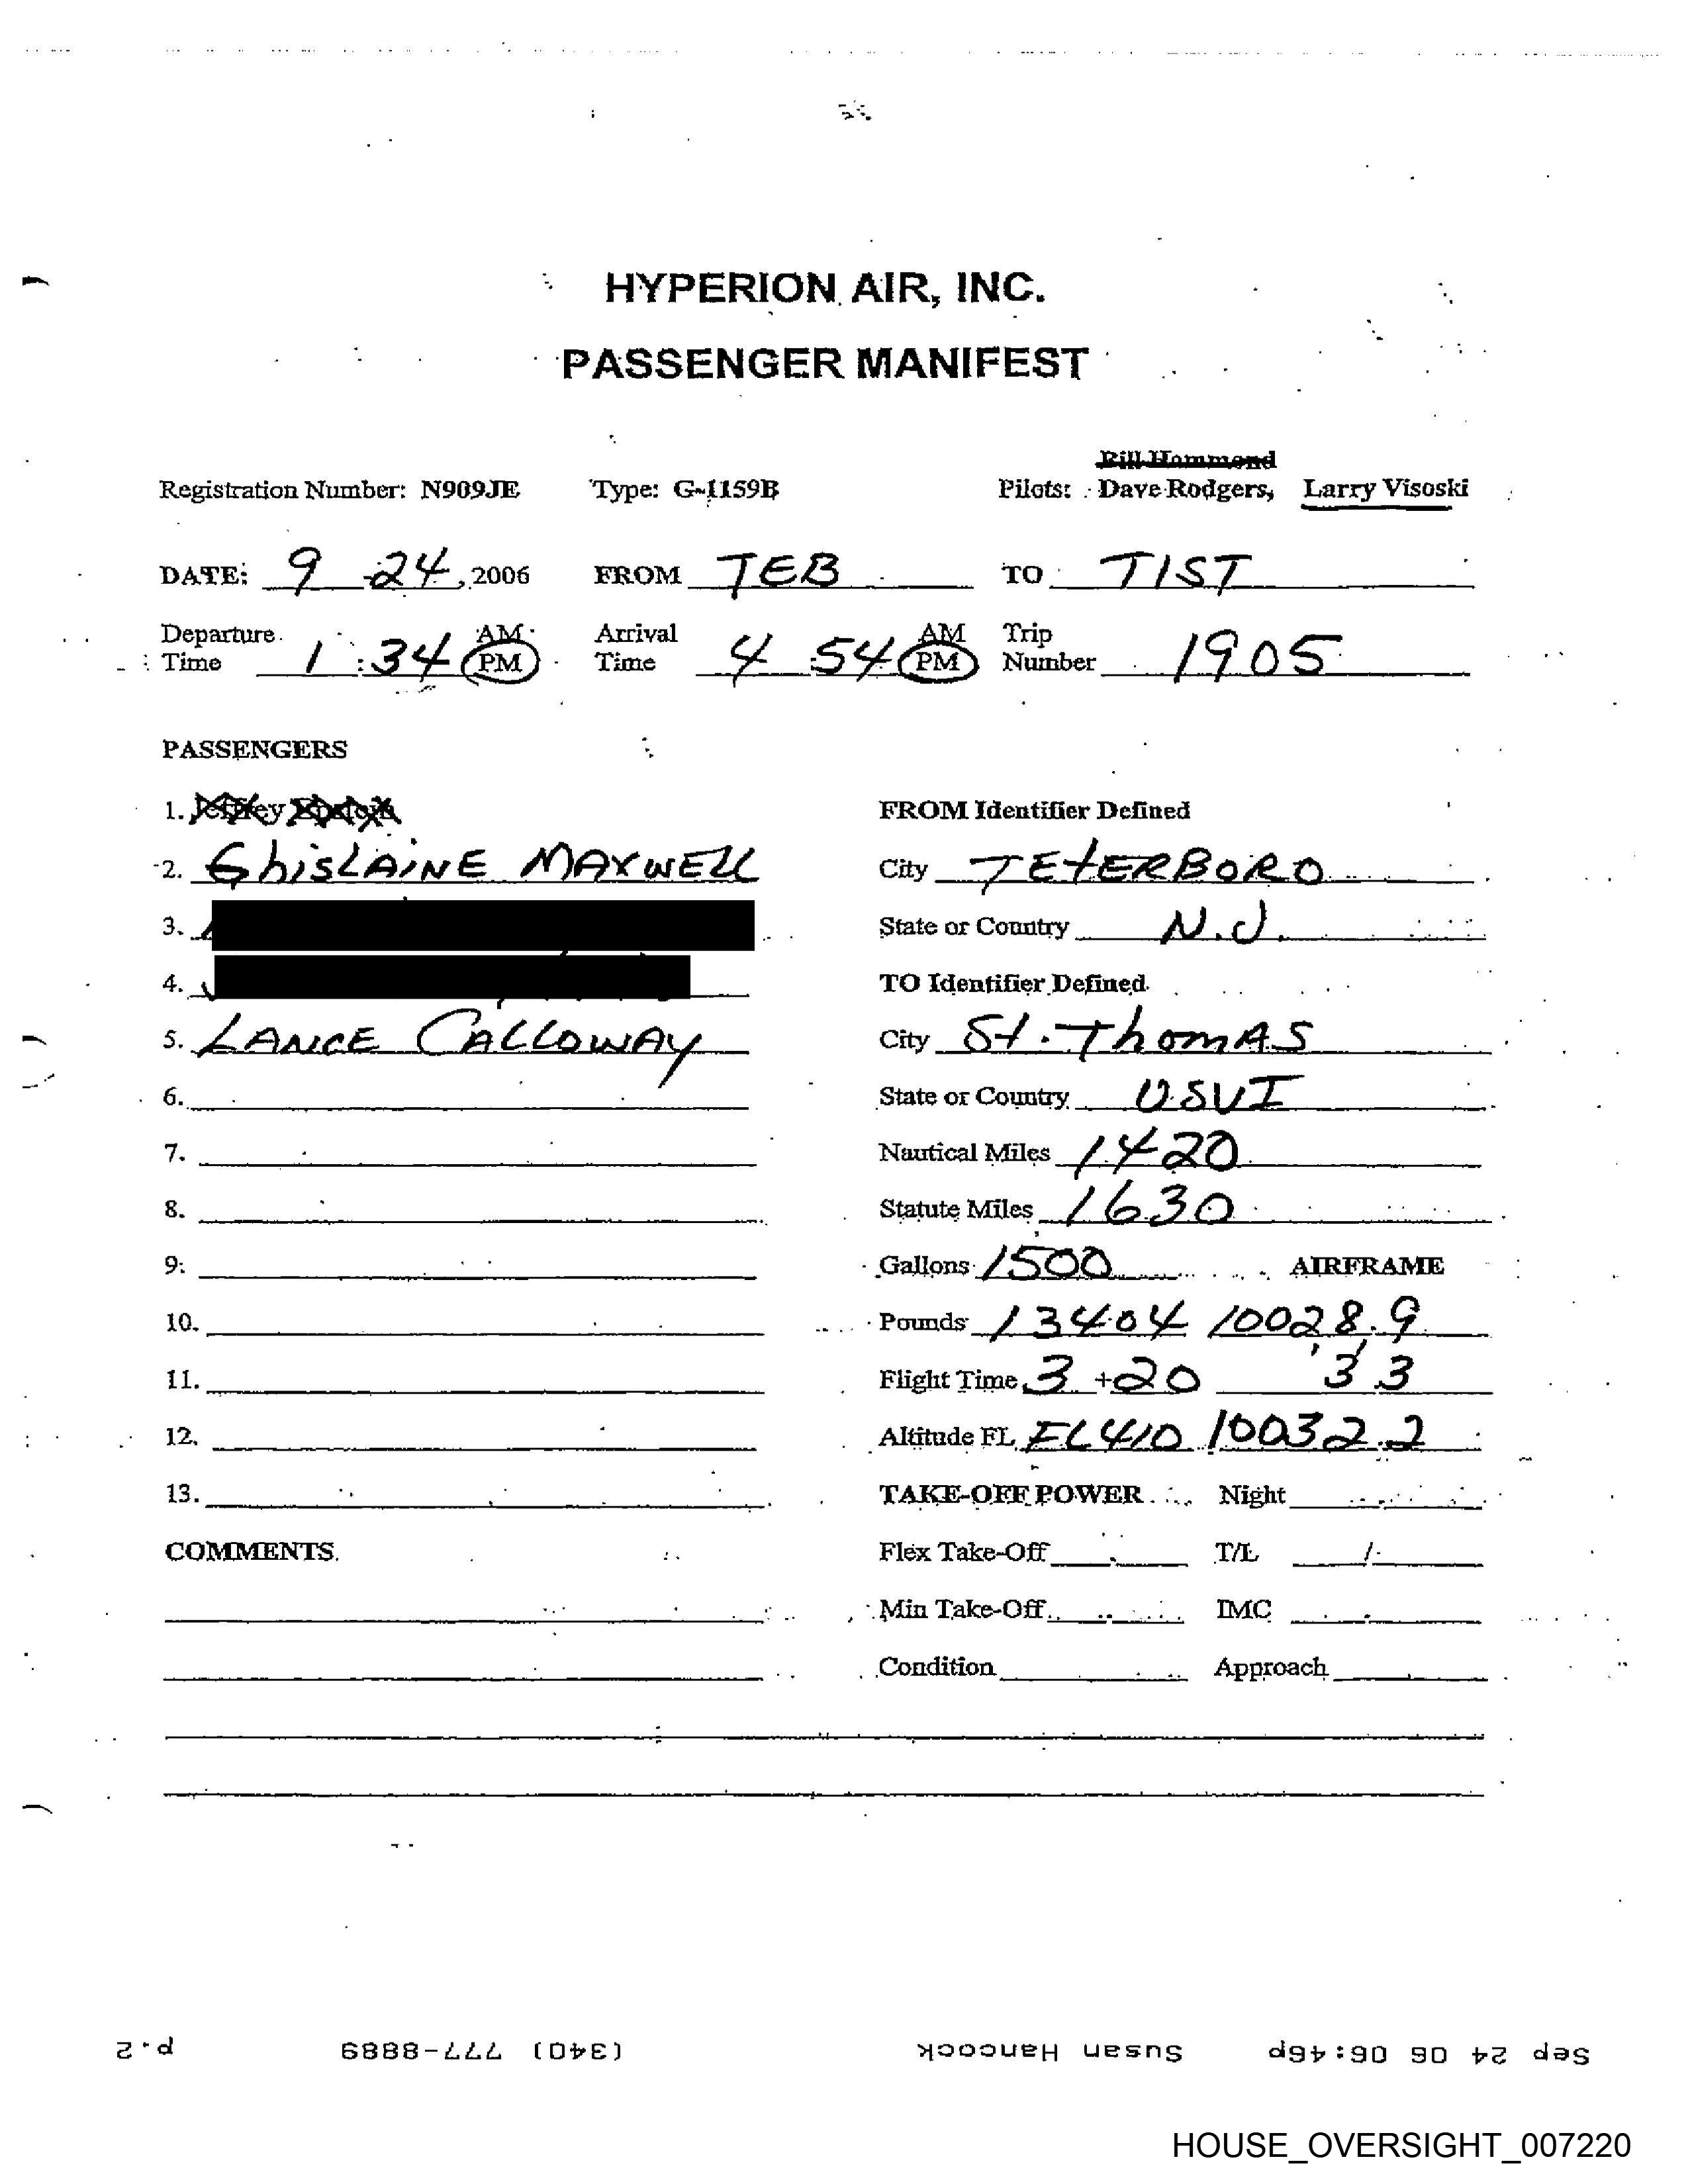 HYPERION AIR, INC.
PASSENGER MANIFEST
Bill Hammond
Registration Number: N909JE Type: G-1159B Pilots: Dave Rodgers, Larry Visoski
DATE: 9-24, 2006 FROM TEB TO TIST
Departure Time 1:34 AM PM Arrival Time 4:54 AM PM Trip Number 1905
PASSENGERS
1. Jeffrey Epstein FROM Identifier Defined
2. GhisLAiNE MAXWELL City TEtERBORO
3. State or Country N.J.
4. TO Identifier Defined
5. LANCE CALLOWAY City St. ThomAS
6. State or Country USVI
7. Nautical Miles 1420
8. Statute Miles 1630
9. Gallons 1500 AIRFRAME
10. Pounds 13404 10028.9
11. Flight Time 3+20 3.3
12. Altitude FL FL410 10032.2
13. TAKE-OFF POWER Night
COMMENTS Flex Take-Off T/L /
Min Take-Off IMC
Condition Approach
Sep 24 06 06:46p Susan Hancock (340) 777-8889 p.2
HOUSE_OVERSIGHT_007220